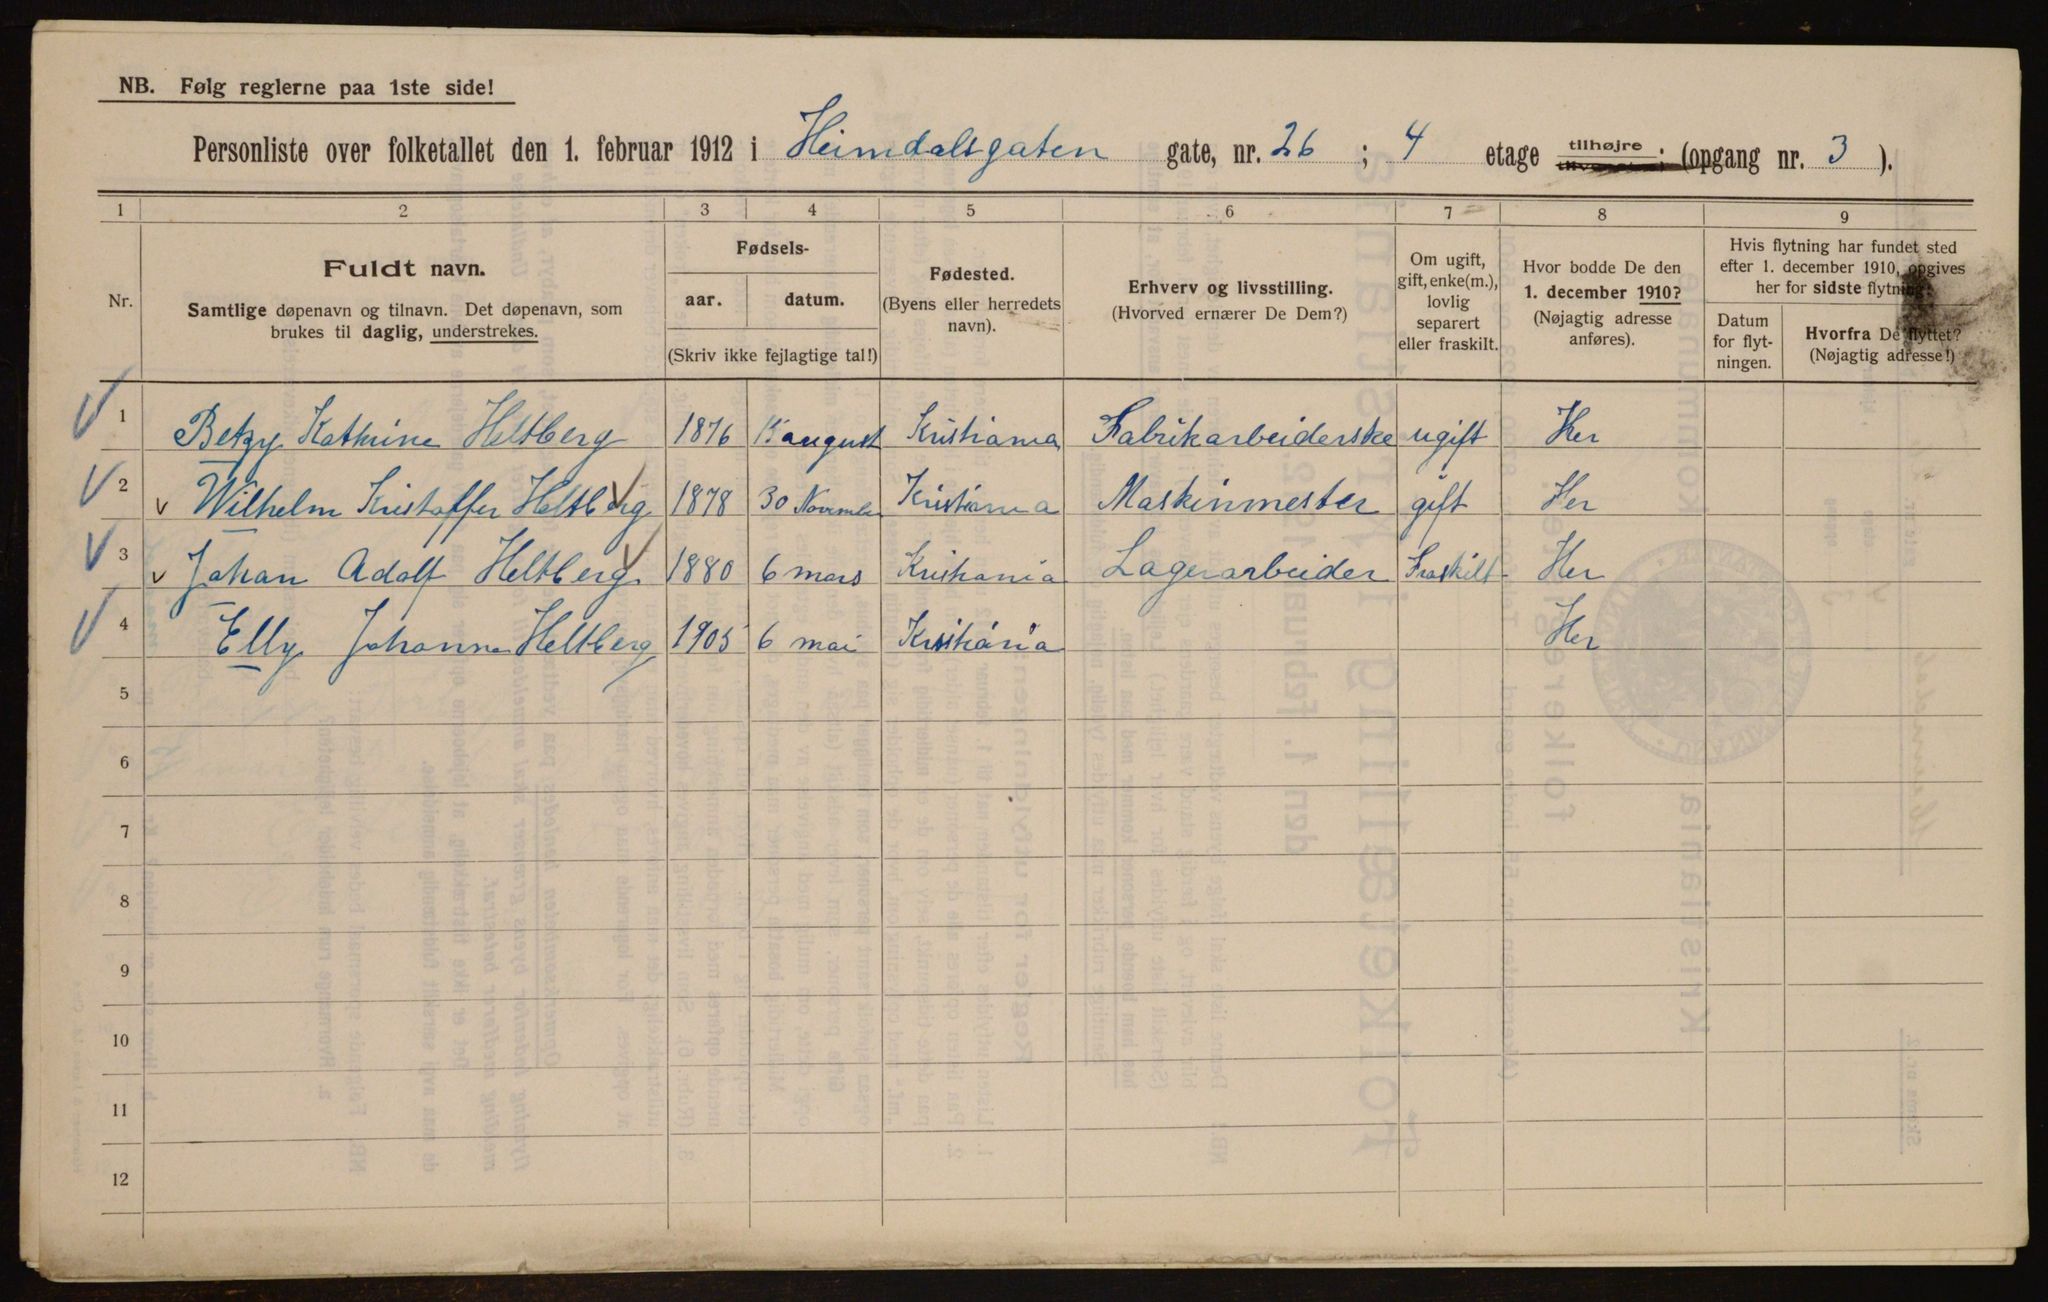 NB. Følg reglerne paa 1ste side!
Personliste over folketallet den 1. februar 1912 i Heimdalsgaten gate, nr. 26 ; 4 etage tilhøjre (opgang nr. 3 ).
1 2 3 4 5 6 7 8 9
Nr.
Fuldt navn.
Samtlige døpenavn og tilnavn. Det døpenavn, som
brukes til daglig, understrekes.
Fødsels-
aar. datum.
(Skriv ikke fejlagtige tal!)
Fødested.
(Byens eller herredets
navn).
Erhverv og livsstilling.
(Hvorved ernærer De Dem?)
Om ugift,
gift, enke(m.),
lovlig
separert
eller fraskilt.
Hvor bodde De den
1. december 1910?
(Nøjagtig adresse
anføres).
Hvis flytning har fundet sted
efter 1. december 1910, opgives
her for sidste flytning:
Datum
for flyt-
ningen.
Hvorfra De flyttet?
(Nøjagtig adresse!)
1 Betzy Kathrine Heltberg 1876 15 august Kristiania Fabrikarbeiderske ugift Her
2 v Wilhelm Kristoffer Heltberg 1878 30 November Kristiania Maskinmester gift Her
3 v Johan Adolf Heltberg 1880 6 mars Kristiania Lagerarbeider Fraskilt Her
4 Elly Johanne Heltberg 1905 6 mai Kristiania Her
5
6
7
8
9
10
11
12